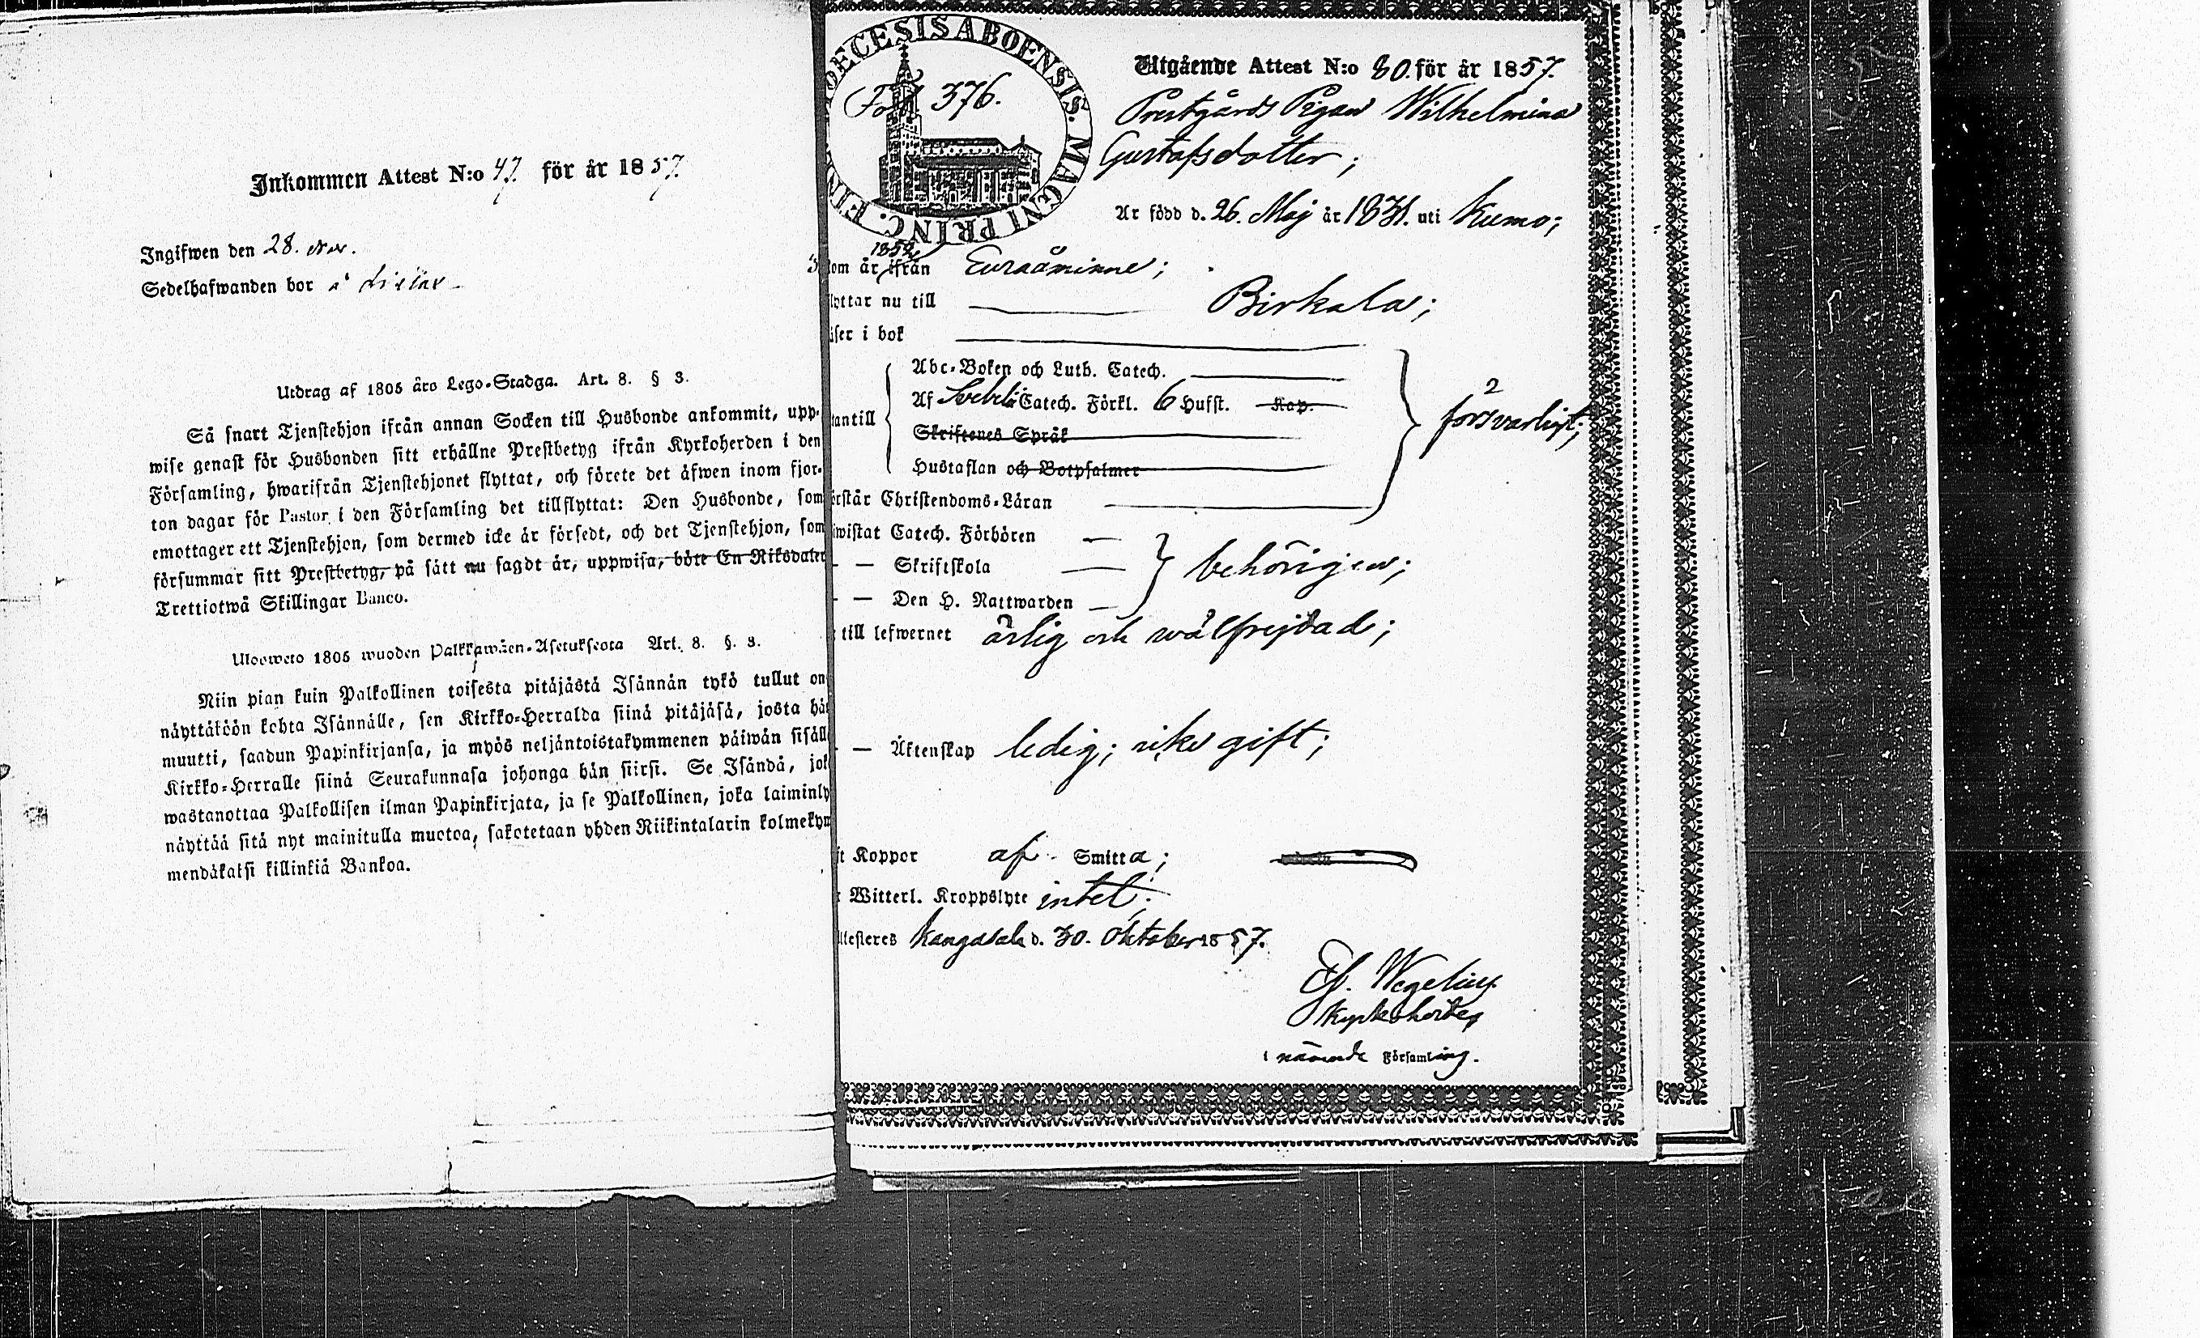 Inkommen Attest N:o 47. för år 1857.
Ingifwen den 28. Nov.
Sedelhafwanden bor å
Utdrag af 1805 åro Lego-Stadga. Art. 8. § 3.
Så snart Tjenstehjon ifrån annan Socken till Husbonde ankommit, upp-
wise genast för Husbonden sitt erhållne Prestbetyg ifrån Kyrkoherden i den
Församling, hwarifrån Tjenstehjonet flyttat, och förete det åfwen inom fjor-
ton dagar för Pastor i den Församling det tillflyttat: Den Husbonde, som
emottager ett Tjenstehjon, som dermed icke år försedt, och det Tjenstehjon, som
försummar sitt Prestbetyg, på sått nu sagdt år, uppwisa, böte En Riksdaler
Trettiotwå Skillingar Banco.
Ulosweto 1805 wuoden Palkkawäen-Asetuksesta Art. 8. §. 3.
Niin pian kuin Palkollinen toisesta pitåjåstå Isånnån tykö tullut on
nåyttåköön kohta Isånnålle, sen Kirkko-Herralda siinå pitåjåså, josta hån
muutti, saadun Papinkirjansa, ja myös neljåntoistakymmenen påiwån sisållå
Kirkko-Herralle siinå Seurakunnasa johonga hån siirsi. Se Isåndå, joka
wastanottaa Palkollisen ilman Papinkirjata, ja se Palkollinen, joka laiminly
nåyttåå sitå nyt mainitulla muotoa, sakotetaan yhden Riikintalarin kolmekym
mendåkaksi killinkiå Bankoa.
DIOECESIS ABOENSIS. MAGNI PRINC. FIN
Fol 376.
Utgående Attest N:o 80. för år 1857.
Prestgårds Pigan Wilhelmina
Gustafsdotter;
Ar född d. 26. Maj år 1831. uti Kumo;
1852
som år ifrån Euraåminne;
lyttar nu till Birkala;
åser i bok
Abc-Boken och Luth. Catech.
Af Svebelii Catech. Förkl. 6 Hufst. Kap.
antill
2
försvarligt;
Skriftenes Språk
Hustaflan och Botpsalmer
rstår Christendoms-Låran
iwistat Catech. Förhören
— — Skriftskola
behörigen;
— — Den H. Nattwarden
till lefwernet årlig och wålfrejdad;
— — Åktenskap ledig; icke gift;
ft Koppor af Smitta;
Witterl. Kroppslyte intet;
ttesteres Kangasala d. 30. Oktober 1857.
Ef. Wegelius
Kyrkoherde
i nämnde Församling.